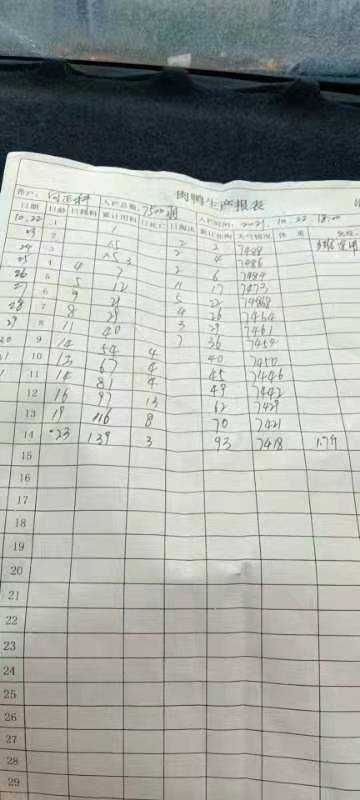 肉鸭生产报表
入栏总数: 7500羽 入栏时间: 2021.10.22 18:00
日期 日龄 日耗料 累计用料 日死亡 日淘汰 累计死淘 天气情况 体重 免疫
10.22 1 1
23 2 1.5 2 2 7498
24 2 4 7486
25 4 4 7 2 6 7484
26 5 5 12 11 17 7473
27 6 9 21 5 22
28 7 8 29 4 26 7464
29 8 11 40 3 29 7461
9 14 54 4 7 36 7454
10 13 67 4 40 7450
11 14 81 4 45 7446
12 16 97 13 49 7442
13 19 116 8 62 7429
14 23 139 3 70 7421
93 7418
15
16
17
18
19
20
21
22
23
24
25
26
27
28
29